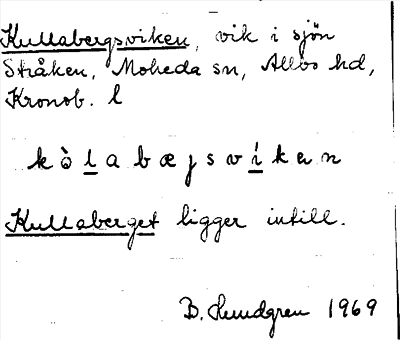 Kullabergsviken, vik i sjön
Stråken, Moheda sn, Allbo hd,
Kronob. l
kòlabæjsvíken
Kullaberget ligger intill.
B. Lundgren 1969